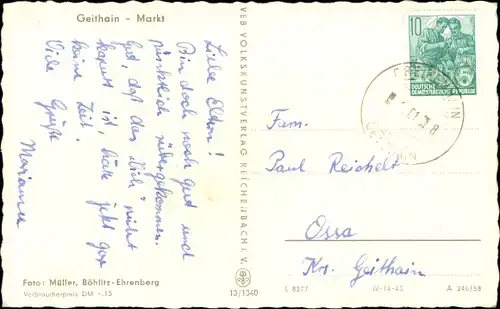 Geithain - Markt
Liebe Eltern!
Bin doch noch gut und
pünktlich rübergekommen.
Gut, daß das Licht nicht
kaputt ist, habe jetzt gar
keine Zeit.
Viele Grüße
Marianne
Foto: Müller, Böhlitz-Ehrenberg
Verbraucherpreis DM -.15
VEB VOLKSKUNSTVERLAG REICHENBACH I. V.
13/1340
10
DEUTSCHE
DEMOKRATISCHE REPUBLIK
Fam.
Paul Reichelt
Ossa
Krs. Geithain
L 8277
IV-14-45
A 246/58